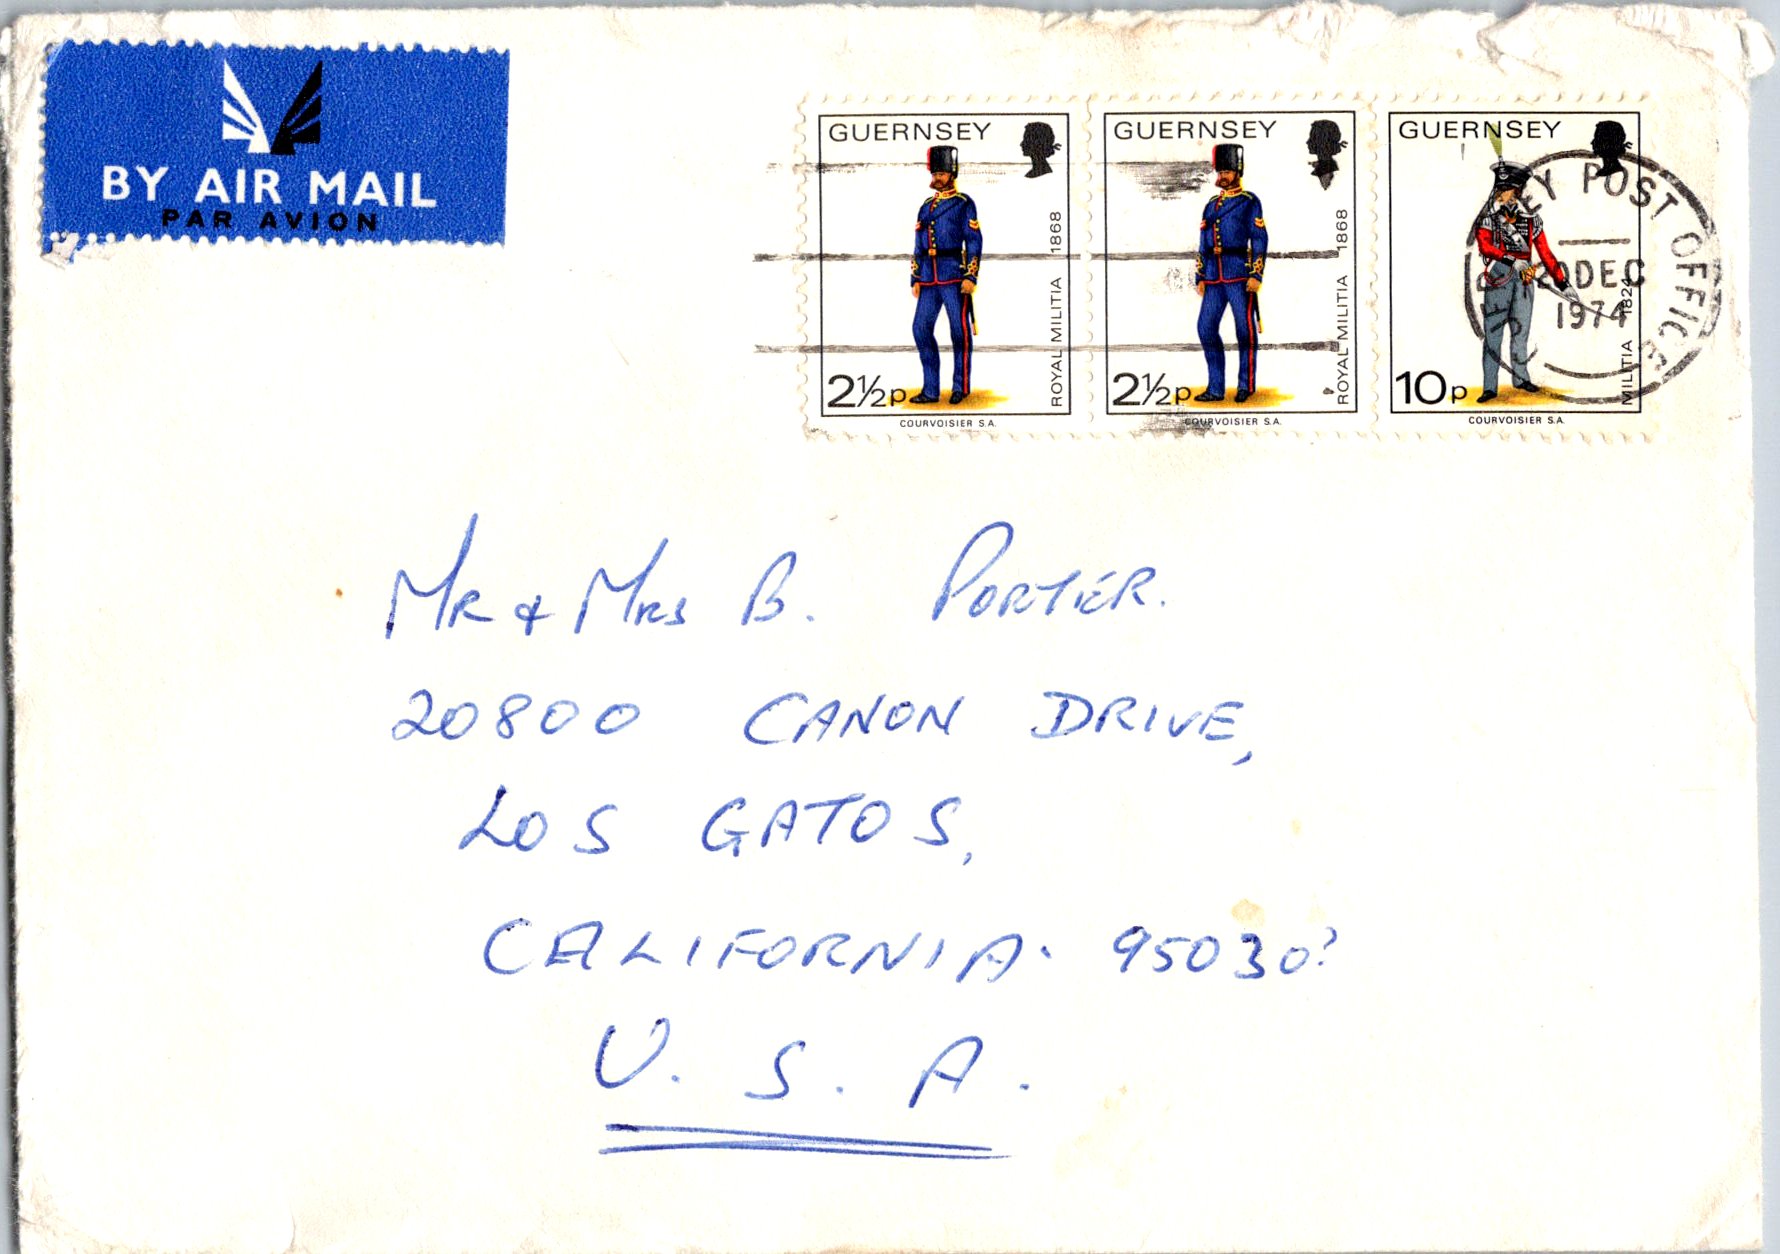 BY AIR MAIL
PAR AVION
GUERNSEY
ROYAL MILITIA 1868
2½p
COURVOISIER S.A.
GUERNSEY
ROYAL MILITIA 1868
2½p
COURVOISIER S.A.
GUERNSEY
MILITIA 1824
10p
COURVOISIER S.A.
POST OFFICE
20 DEC
1974
MR & MRS B. PORTER.
20800 CANON DRIVE,
LOS GATOS,
CALIFORNIA. 95030?
U.S.A.